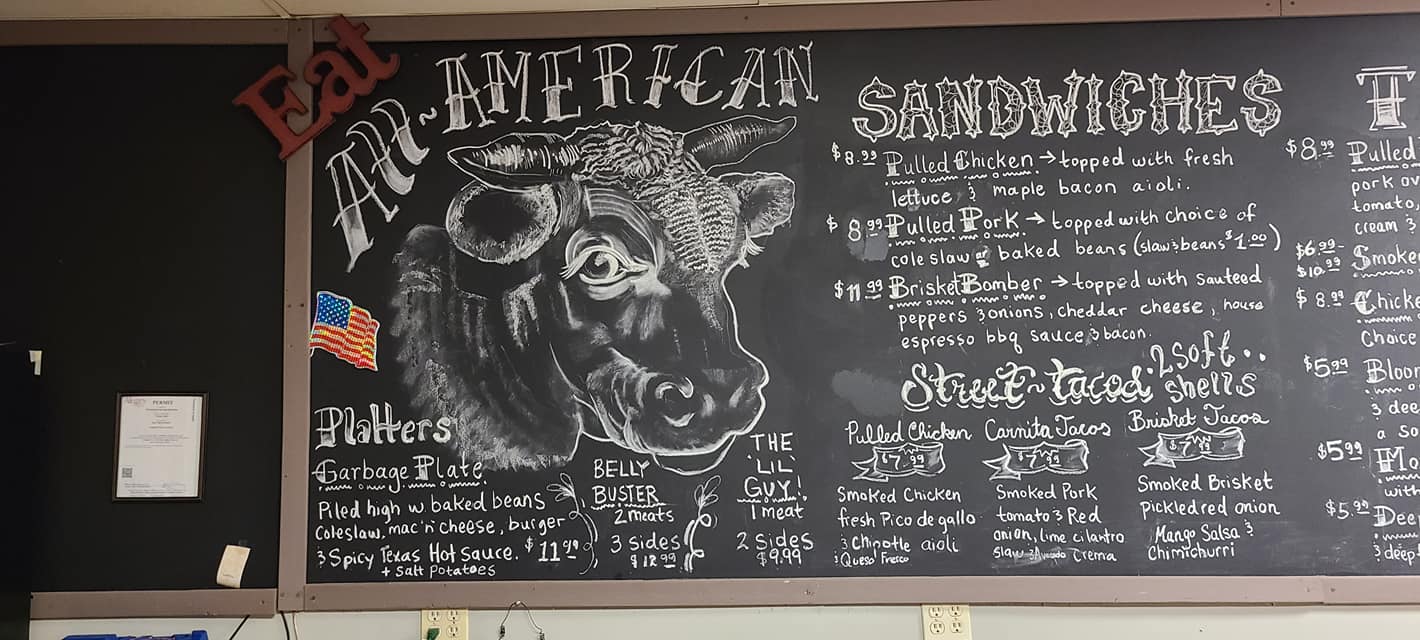 Eat
All~AMERICAN
PERMIT
Platters
Garbage Plate
Piled high w baked beans
Coleslaw, mac'n'cheese, burger
& Spicy Texas Hot sauce. $11.99
+ Salt Potatoes
BELLY
BUSTER
2 meats
3 sides
$12.99
THE
'LIL'
GUY!
1 meat
2 Sides
$9.99
SANDWICHES
$8.99 Pulled Chicken → topped with fresh
lettuce & maple bacon aioli.
$8.99 Pulled Pork → topped with choice of
coleslaw or baked beans (slaw & beans $1.00)
$11.99 Brisket Bomber → topped with sauteed
peppers & onions, cheddar cheese, house
espresso bbq sauce & bacon.
Street~tacos 2 soft..
shells
Pulled Chicken
$7.99
Smoked Chicken
fresh Pico de gallo
& Chipotle aioli
& Queso Fresco
Carnita Tacos
$7.99
Smoked Pork
tomato & Red
onion, lime cilantro
Slaw & Avocado Crema
Brisket Tacos
$7.99
Smoked Brisket
pickled red onion
Mango Salsa &
Chimichurri
T
$8.99 Pulled
pork ov
tomato,
cream &
$6.99-
$10.99 Smoke
$8.99 Chicke
Choice
$5.99 Bloom
3 dee
a so
$5.99 Mo
with
$5.99 Dee
& deep